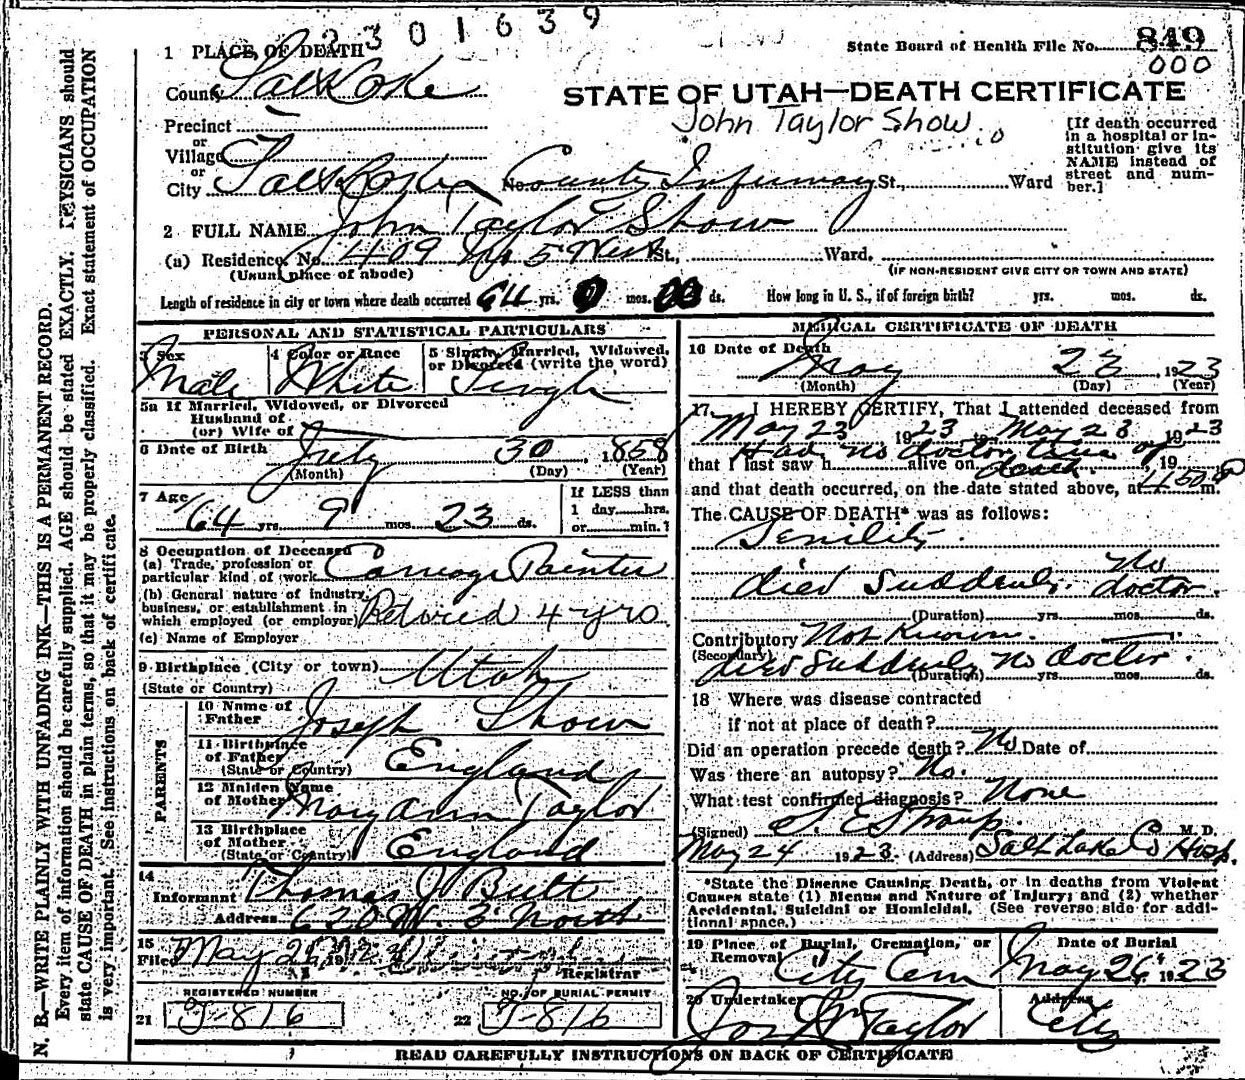 2301639
State Board of Health File No. 849
000
1 PLACE OF DEATH
County Salt Lake
STATE OF UTAH—DEATH CERTIFICATE
John Taylor Show
Precinct
or
Village
or
City Salt Lake No. County Infirmary St., Ward
[If death occurred
in a hospital or in-
stitution give its
NAME instead of
street and num-
ber.]
2 FULL NAME John Taylor Show
(a) Residence. No. 409 No 5 West St., Ward.
(Usual place of abode)
(IF NON-RESIDENT GIVE CITY OR TOWN AND STATE)
Length of residence in city or town where death occurred 64 yrs. mos. ds. How long in U. S., if of foreign birth? yrs. mos. ds.
PERSONAL AND STATISTICAL PARTICULARS
3 Sex
Male
4 Color or Race
White
5 Single, Married, Widowed,
or Divorced (write the word)
Single
5a If Married, Widowed, or Divorced
Husband of
(or) Wife of
6 Date of Birth July 30, 1858
(Month) (Day) (Year)
7 Age
64 yrs. 9 mos. 23 ds.
If LESS than
1 day hrs.
or min.?
8 Occupation of Deceased
(a) Trade, profession or
particular kind of work Carriage Painter
(b) General nature of industry,
business, or establishment in
which employed (or employer) Retired 4 yrs
(c) Name of Employer
9 Birthplace (City or town) Utah
(State or Country)
PARENTS
10 Name of
Father Joseph Show
11 Birthplace
of Father England
(State or Country)
12 Maiden Name
of Mother Mary Ann Taylor
13 Birthplace
of Mother England
(State or Country)
14
Informant Thomas J Butt
Address 620 W. 3 North
15
Filed May 26, 19
Registrar
REGISTERED NUMBER
21 J-816
NO. OF BURIAL PERMIT
22 J-816
MEDICAL CERTIFICATE OF DEATH
16 Date of Death
May 23, 1923
(Month) (Day) (Year)
17. I HEREBY CERTIFY, That I attended deceased from
May 23 1923 to May 23 1923
Had no doctor time of
that I last saw h alive on death, 19
and that death occurred, on the date stated above, at 1150 P m.
The CAUSE OF DEATH* was as follows:
Senility.
Died Suddenly. No doctor.
(Duration) yrs. mos. ds.
Contributory Not Known.
(Secondary) Died Suddenly no doctor.
(Duration) yrs. mos. ds.
18 Where was disease contracted
if not at place of death?
Did an operation precede death? No Date of
Was there an autopsy? No.
What test confirmed diagnosis? None
(Signed) M. D.
May 24 1923. (Address) Salt Lake Co Hosp.
*State the Disease Causing Death, or in deaths from Violent
Causes state (1) Means and Nature of Injury; and (2) whether
Accidental, Suicidal or Homicidal. (See reverse side for addi-
tional space.)
19 Place of Burial, Cremation, or
Removal City Cem
Date of Burial
May 26 1923
20 Undertaker
Jos Wm Taylor
Address
City
READ CAREFULLY INSTRUCTIONS ON BACK OF CERTIFICATE
N. B.—WRITE PLAINLY WITH UNFADING INK—THIS IS A PERMANENT RECORD.
Every item of information should be carefully supplied. AGE should be stated EXACTLY. PHYSICIANS should
state CAUSE OF DEATH in plain terms, so that it may be properly classified. Exact statement of OCCUPATION
is very important. See instructions on back of certificate.